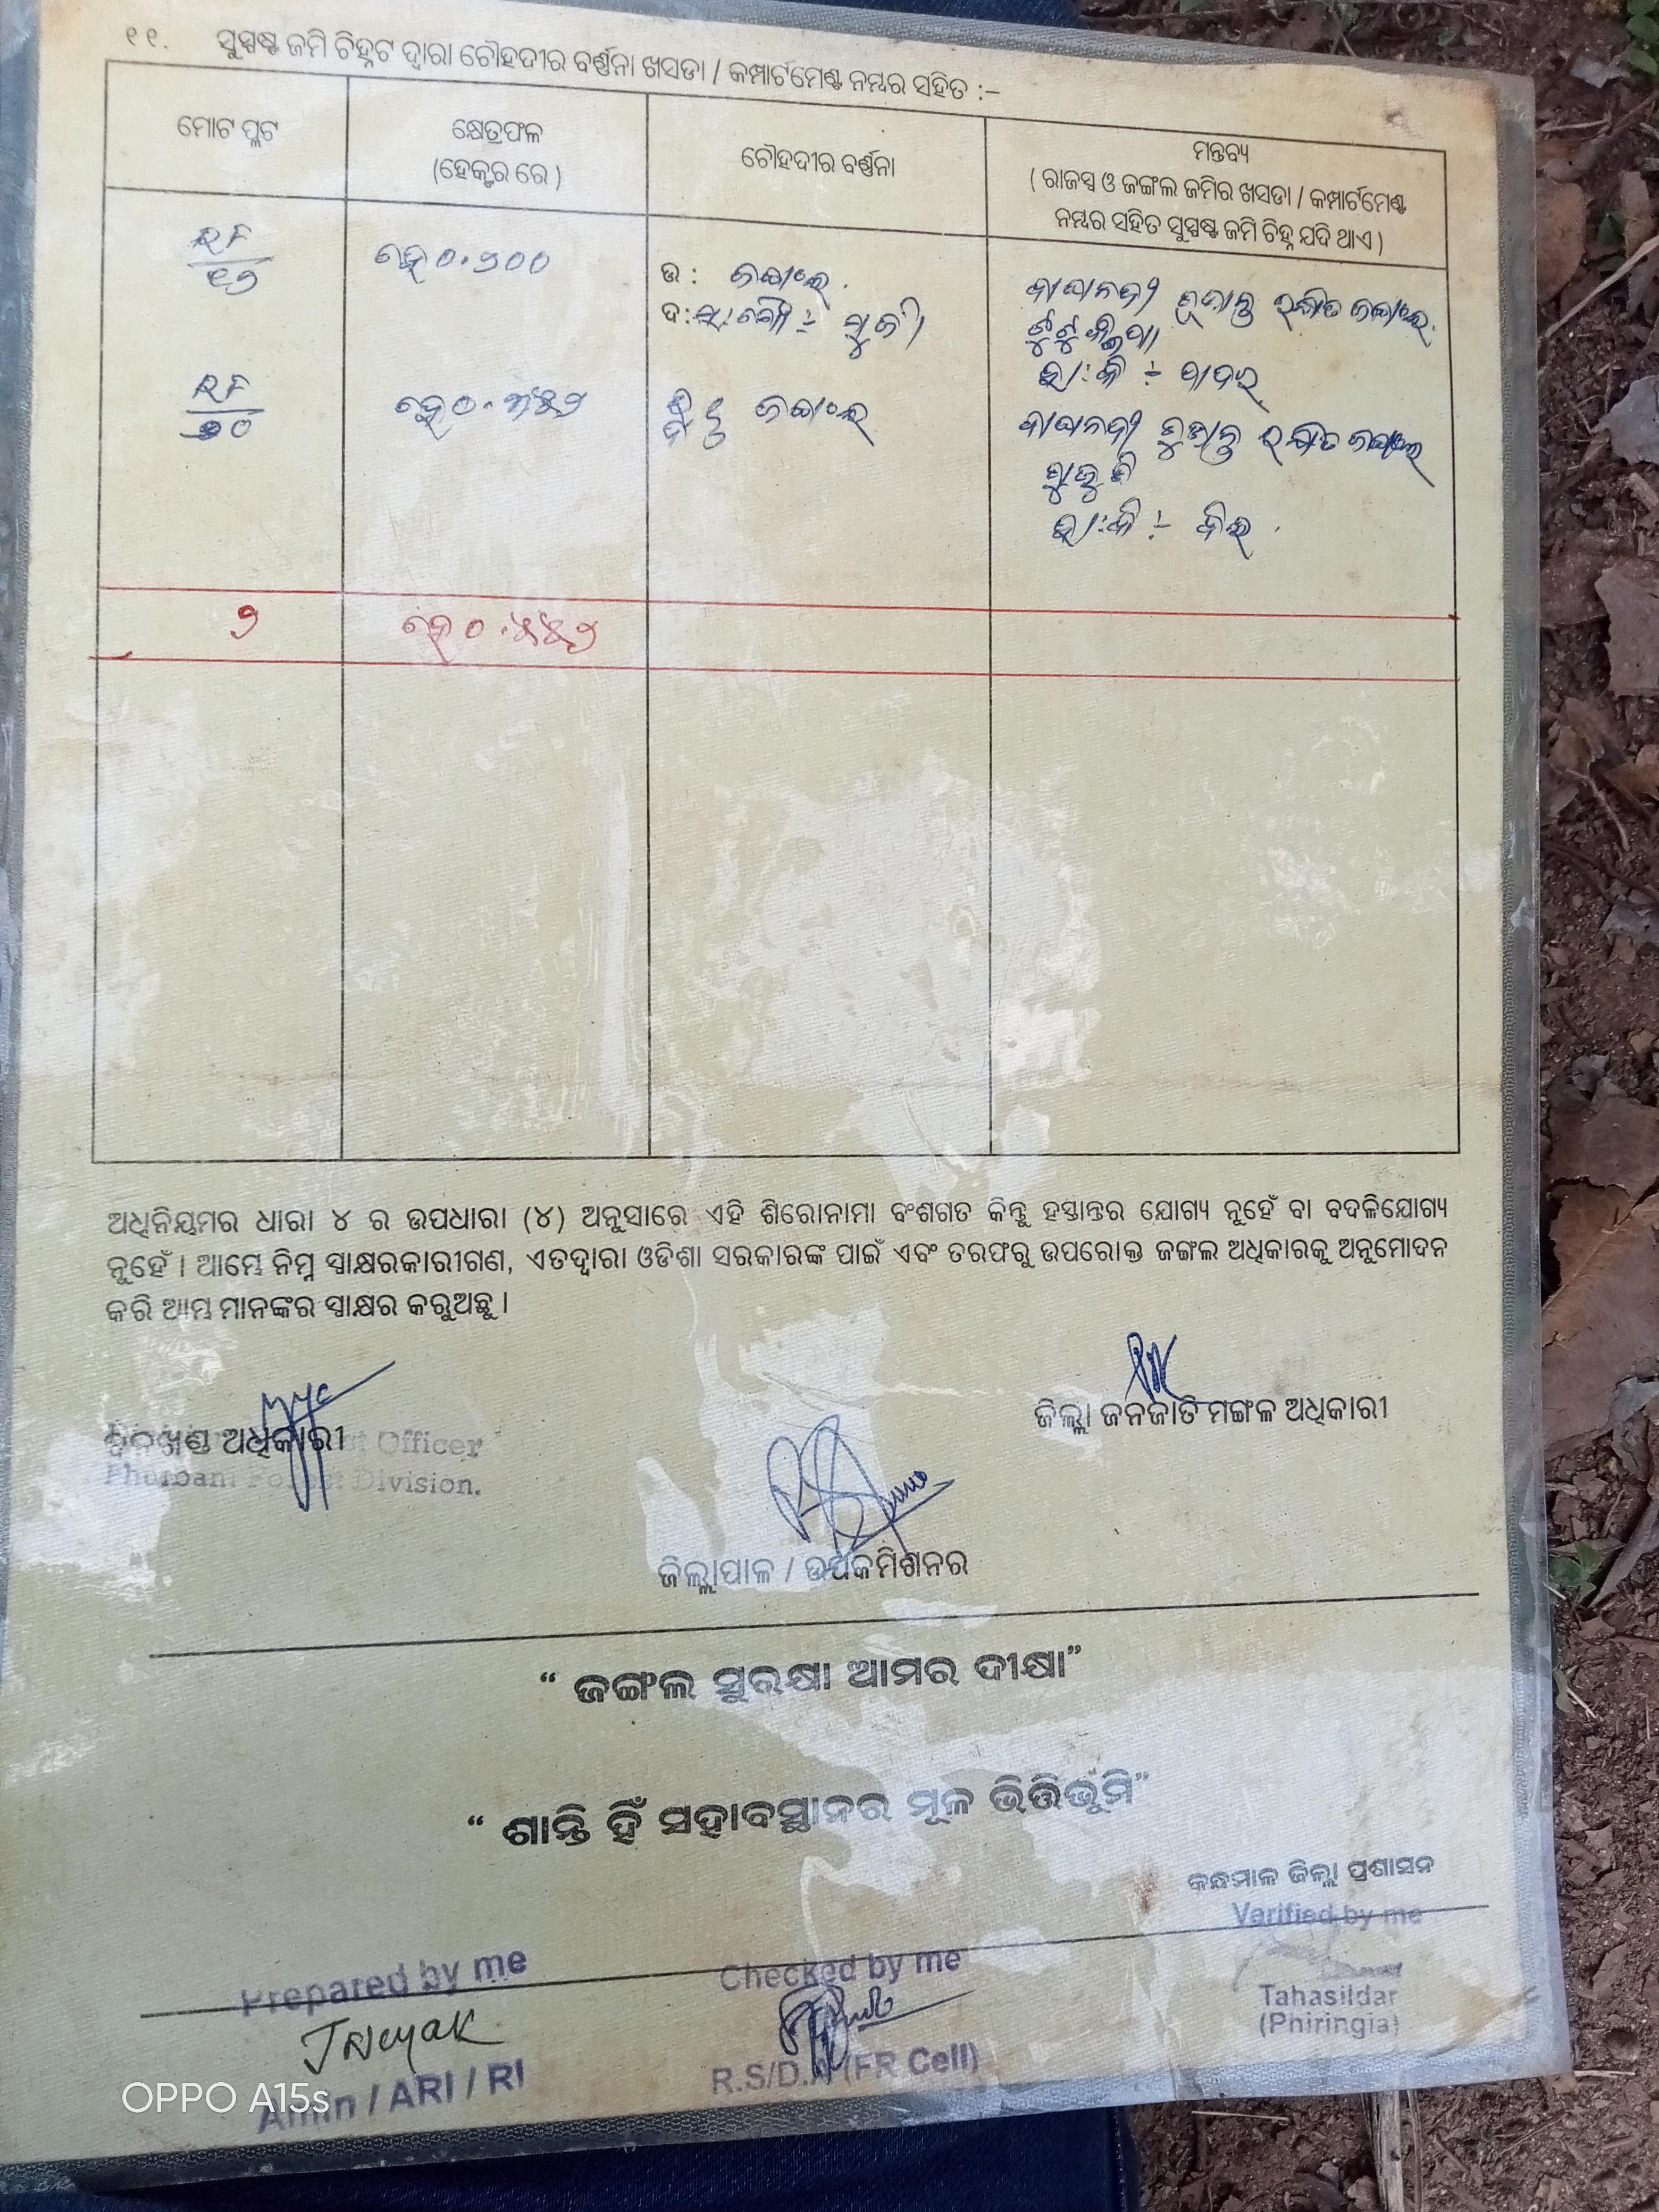 ୧୧. ସୁସ୍ପଷ୍ଟ ଜମି ଚିହ୍ନଟ ଦ୍ୱାରା ଚୌହଦୀର ବର୍ଣ୍ଣନା ଖସଡା / କମ୍ପାର୍ଟମେଣ୍ଟ ନମ୍ବର ସହିତ :–
ମୋଟ ପ୍ଲଟ
କ୍ଷେତ୍ରଫଳ
(ହେକ୍ଟର ରେ )
ଚୌହଦୀର ବର୍ଣ୍ଣନା
ମନ୍ତବ୍ୟ
( ରାଜସ୍ୱ ଓ ଜଙ୍ଗଲ ଜମିର ଖସଡା / କମ୍ପାର୍ଟମେଣ୍ଟ
ନମ୍ବର ସହିତ ସୁସ୍ପଷ୍ଟ ଜମି ଚିହ୍ନ ଯଦି ଥାଏ )
RF
୧୭
ହେ ୦.୨୦୦
ଉ : ଜଙ୍ଗଲ
ଦ:
ରକ୍ଷିତ ଜଙ୍ଗଲ
RF
୨୦
ହେ ୦.୩୫୨
ଜଙ୍ଗଲ
ରକ୍ଷିତ ଜଙ୍ଗଲ
୨
ହେ ୦.୫୫୨
ଅଧିନିୟମର ଧାରା ୪ ର ଉପଧାରା (୪) ଅନୁସାରେ ଏହି ଶିରୋନାମା ବଂଶଗତ କିନ୍ତୁ ହସ୍ତାନ୍ତର ଯୋଗ୍ୟ ନୁହେଁ ବା ବଦଳିଯୋଗ୍ୟ
ନୁହେଁ । ଆମ୍ଭେ ନିମ୍ନ ସ୍ୱାକ୍ଷରକାରୀଗଣ, ଏତଦ୍ୱାରା ଓଡିଶା ସରକାରଙ୍କ ପାଇଁ ଏବଂ ତରଫରୁ ଉପରୋକ୍ତ ଜଙ୍ଗଲ ଅଧିକାରକୁ ଅନୁମୋଦନ
କରି ଆମ୍ଭ ମାନଙ୍କର ସ୍ୱାକ୍ଷର କରୁଅଛୁ ।
ଜିଲ୍ଲା ଜନଜାତି ମଙ୍ଗଳ ଅଧିକାରୀ
ବନଖଣ୍ଡ ଅଧିକାରୀ Officer
Phulbani Forest Division.
ଜିଲ୍ଲାପାଳ / ଉପକମିଶନର
“ ଜଙ୍ଗଲ ସୁରକ୍ଷା ଆମର ଦୀକ୍ଷା”
“ ଶାନ୍ତି ହିଁ ସହାବସ୍ଥାନର ମୂଳ ଭିତ୍ତିଭୂମି”
କନ୍ଧମାଳ ଜିଲ୍ଲା ପ୍ରଶାସନ
Verified by me
Prepared by me
Checked by me
Tahasildar
(Phiringia)
JNayak
R.S/D.A (FR Cell)
Amin / ARI / RI
OPPO A15s